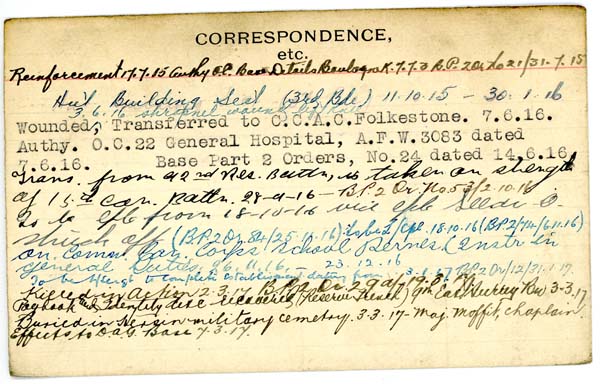 CORRESPONDENCE,
etc.
Reinforcement 17.7.15 Authy O.C. Base Details Boulogne K.7.7.3 B.P. 2 Or No 21/31-7-15
Hut Building Sect (3rd Bde) 11-10-15 - 30-1-16
3.6.16 shrapnel wound
Wounded, Transferred to C.C.A.C. Folkestone. 7.6.16.
Authy. O.C. 22 General Hospital, A.F.W. 3083 dated
7.6.16. Base Part 2 Orders, No.24 dated 14.6.16
Trans. from 92nd Res. Battn, is taken on strength
of 15th Can. Battn. 28-9-16 - B.P. 2 Or. No. 53/2.10.16
To be from 18-10-16 vice
struck off (B.P. 2 Or 84/25.10.16) to be a/Cpl. 18.10.16 (B.P. 2/94/6.11.16)
on Comm. Can. Corps School Pernes (Instr in
General Duties) 6.11.16. 23.12.16
To be Sergt to complete establishment dating from 3.1.17 B.P. 2 Or/12/31.1.17.
Killed in Action 2.3.17. B.P. 2 Or. 29 d/
Paybook & Identity disc recovered (Reserve Trench) 9th East Surrey Rw 3-3-17
Buried in Hersin military cemetry. 3-3-17 - Maj. Moffit, chaplain.
Effects to D.A.G. Base 7-3-17.